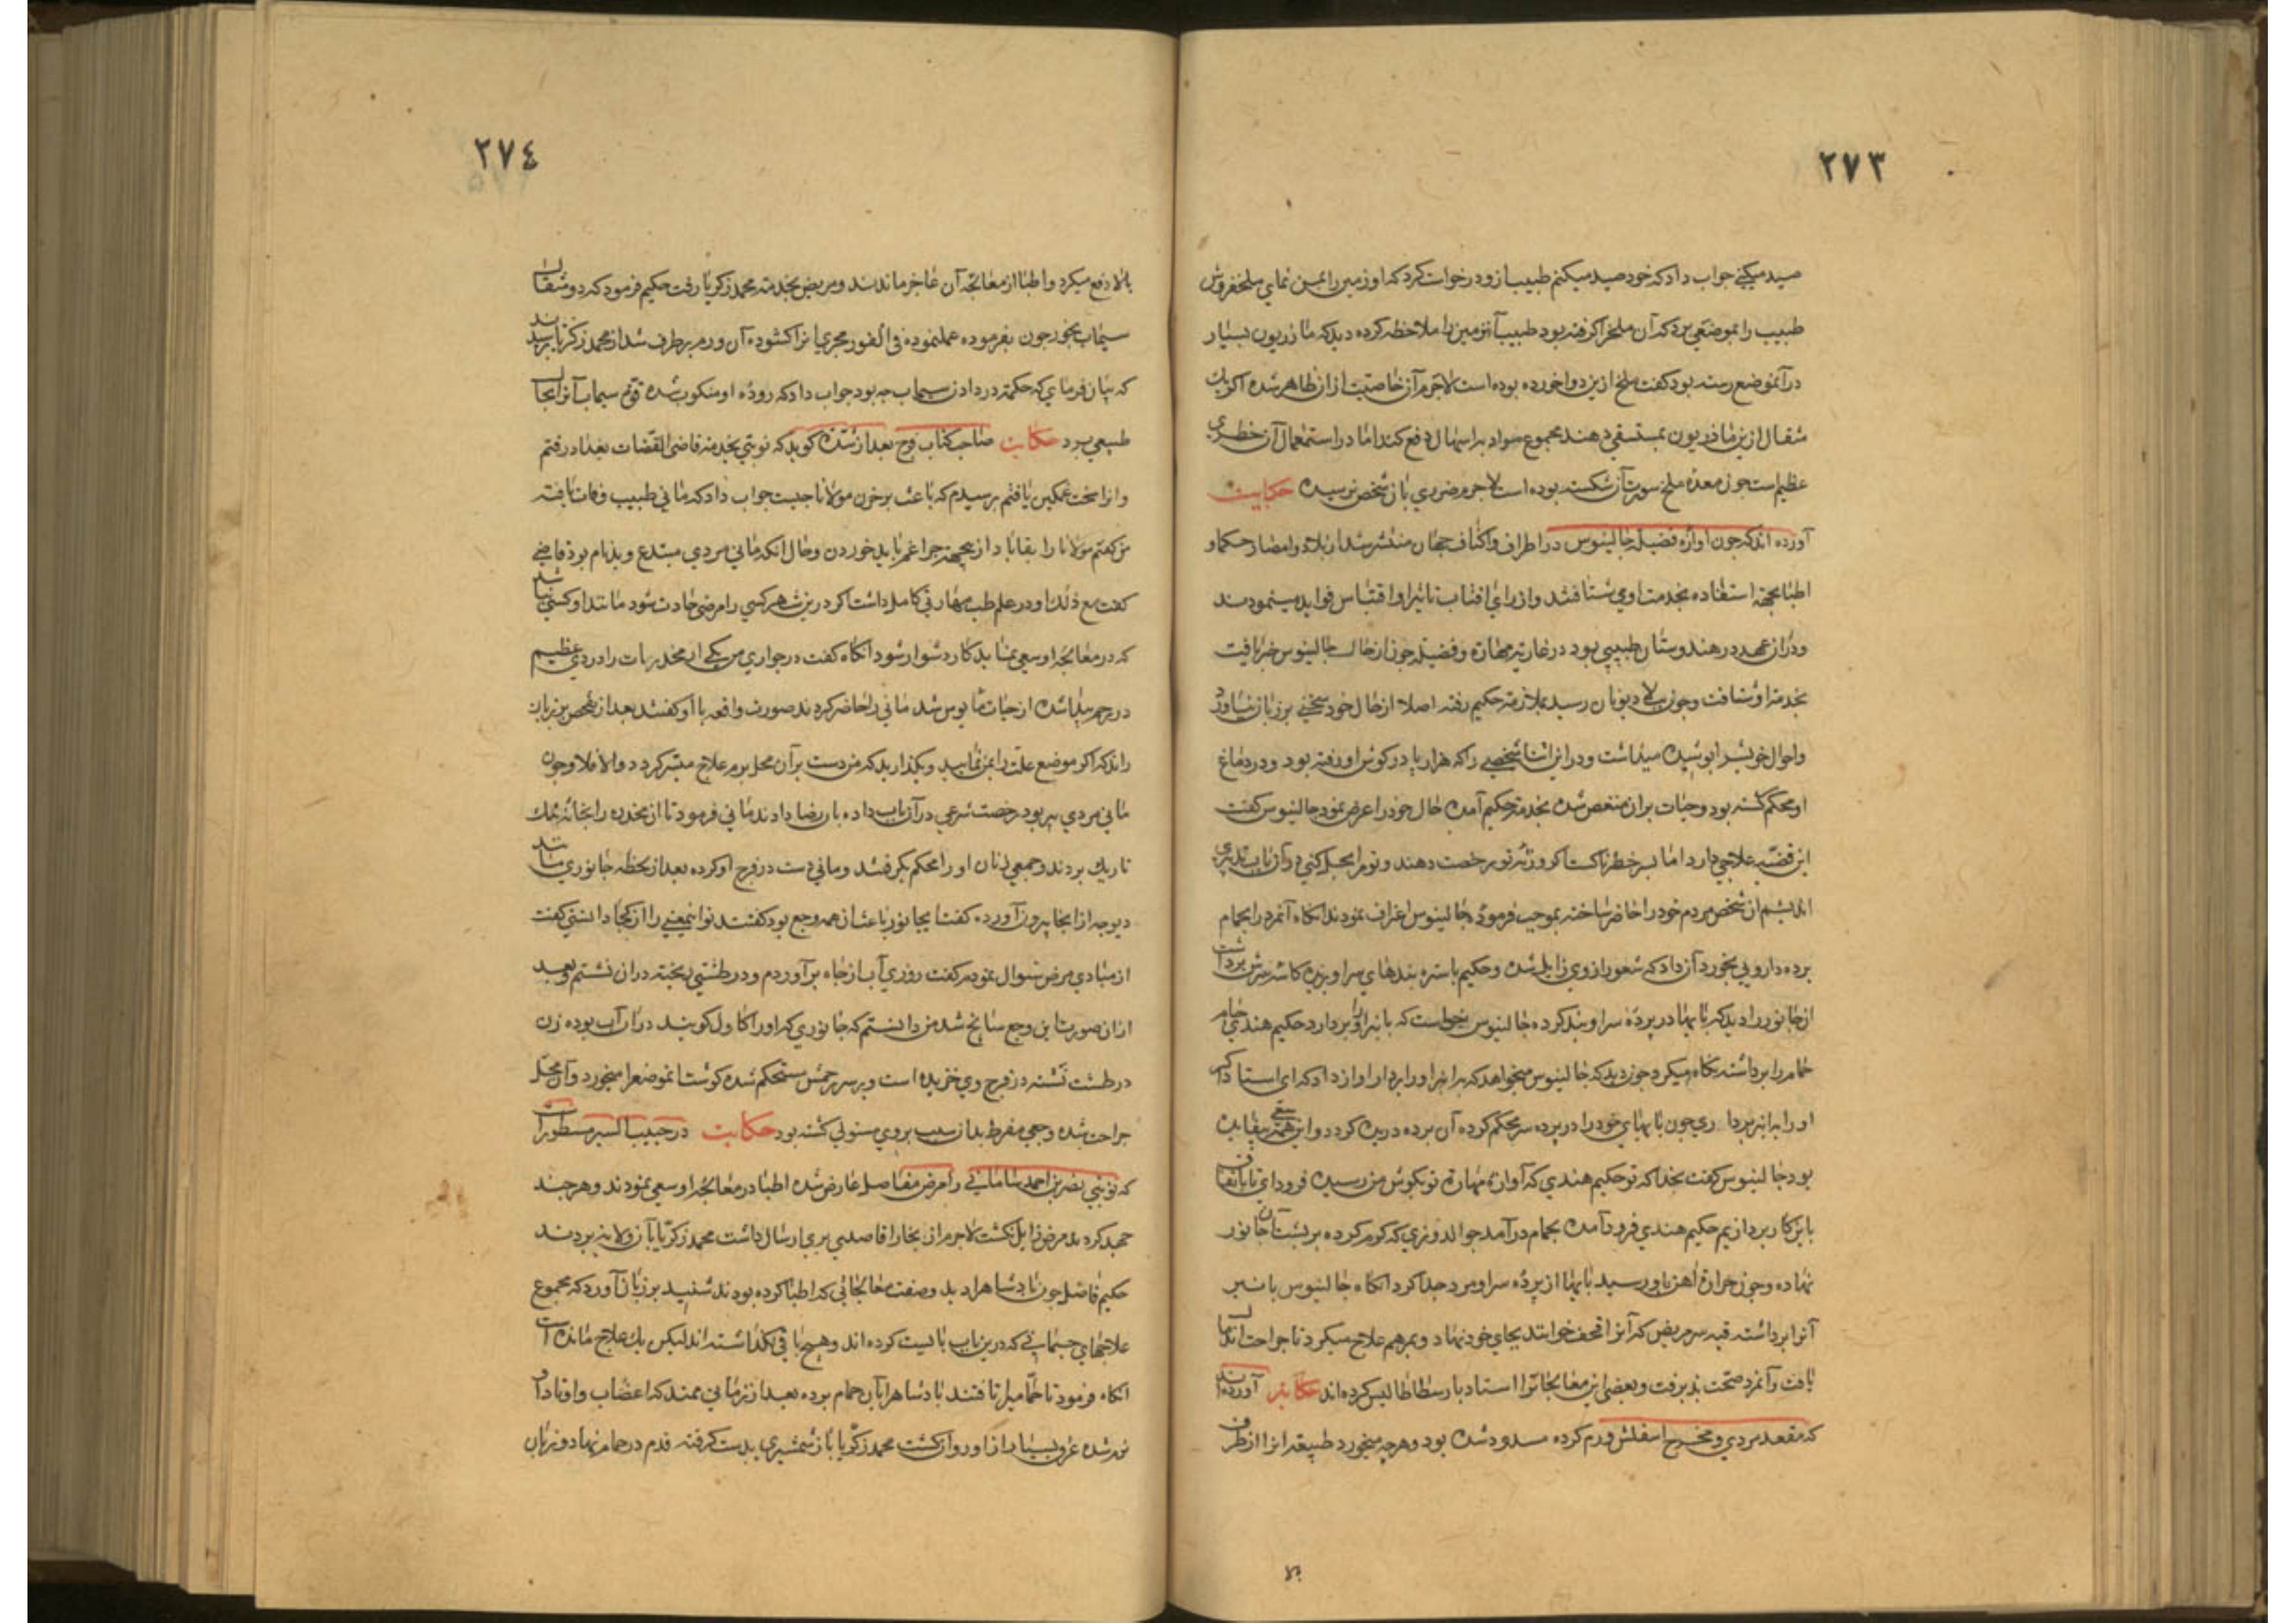 ٢٧٣
صید میکنی جواب داد که خود صید میکنم طبیب ازو درخواست کرد که او زمین را بمن نمای ملخفروش
طبیب را بموضعی برد که آن ملخ را گرفته بود طبیب آنزمین را ملاحظه کرده دید که مازریون بسیار
در آنموضع رسته بود گفت ملخ ازین دوا خورده بوده است لاجرم آن خاصیت از ان ظاهر شده اگر یك
مثقال ازین ماذریون بمستسقی دهند مجموع مواد به اسهال دفع کند اما در استعمال آن خطری
عظیم است چون معده ملخ سورت آن شکسته بوده است لاجرم ضرری بان شخص نرسیده حکایت
آورده اند که چون اوازه فضیله جالینوس در اطراف واکناف جهان منتشر شد از بلاد وامصار حکما و
اطبا بجهة استفاده بخدمت اوی شتافتند واز رای افتاب تاثیر او اقتباس فواید مینمودند
ودران عهد در هندوستان طبیبی بود در غایة مهارة وفضیله چون از حال جالینوس خبر یافت
بخدمة او شتافت وچون ببلاد یونان رسید بملازمة حکیم رفته اصلا از حال خود سخنی بر زبان نیاورد
واحوال خویش را پوشیده میداشت ودر این اثنا شخصی را که هزار پا در کوش او رفته بود ودر دماغ
او محکم کشته بود وحیات بران منغص شده بخدمة حکیم آمده حال خود را عرض نمود جالینوس گفت
این قضیه علاجی دارد اما بس خطرناکست اکر ورثه تو رخصت دهند وتو مرا بحل کنی در آن باب تدبیری
اندیشم ان شخص مردم خود را حاضر ساخته بموجب فرموده جالینوس اعتراف نمودند انکاه آنمرد را بحمام
برده داروئی بخورد آن داد که شعور از وی زایل شده وحکیم باستره بندهای سر او بریده کاسه سرش برداشت
ان جانور را دید که پایها در پرده سر او بند کرده جالینوس خواست که بانبر او را بردارد حکیم هندی جام
حمام را برداشته نکاه میکرد چون دید که جالینوس میخواهد که به انبر او را بردارد اواز داد که ای استاد اکر
او را به انبر برداری چون پایهای خود را در پرده سر محکم کرده آن پرده دریده کردد واین همه سعی بیفایده
بود جالینوس گفت بخدا که تو حکیم هندی که آوازه مهارة تو بکوش من رسیده فرود ای تا باتفاق
باین کار پردازیم حکیم هندی فرود آمده بحمام در آمد جوالدوزی که کرم کرده بر پشت آن جانور
نهاده وچون حرارة اهن باو رسید پایها از پرده سر او مرد جدا کرد انکاه جالینوس بانبر
آنرا برداشته قبه سر مریض که آنرا قحف خوانند بجای خود نهاد وبمرهم علاج میکرد تا جراحت اندمال
یافت وآنمرد صحت پذیرفت وبعضی این معالجات را استاد بارسطاطالیس کرده اند حکایت آورده اند
که مقعد مردی ومخرج اسفلش ورم کرده مسدود شده بود وهرچه میخورد طبیعة انرا از طرف
٢٧٤
بالا دفع میکرد واطبا از معالجه آن عاجز ماندند ومریض بخدمة محمد زکریا رفت حکیم فرمود که دو مثقال
سیماب بخور چون بفرموده عمل نموده فی الفور مجری انرا کشوده آن ورم برطرف شد از محمد زکریا پرسیدند
که بیان فرمای که حکمة در دادن سیماب چه بود جواب داد که روده او منکوس شده قوة سیماب آنرا بحال
طبیعی برد حکایت صاحب کتاب فرج بعد از شدة کوید که نوبتی بخدمة قاضی القضات بغداد رفتم
واورا سخت غمکین یافتم پرسیدم که باعث بر حزن مولانا چیست جواب داد که مانی طبیب وفات یافته
من کفتم مولانا را بقا باد از یجهة چرا غم باید خوردن وحال انکه مانی مردی مبتدع وبدنام بود قاضی
گفت مع ذلك او در علم طب مهارتی کامل داشت اکر درین شهر کسی را مرضی حادث شود مانند او کسی نباشد
که در معالجه او سعی نماید کار دشوار شود انکاه گفت در جواری من یکی از مخدرات را دردی عظیم
در رحم پیدا شده از حیات مایوس شد مانی را حاضر کردند صورت واقعه با او کفتند بعد از تفحص بر زبان
راند که اکر موضع علت را بمن نمایید وبکذارید که من دست بر آن محل برم علاج میسر کردد والا فلا وچون
مانی مردی پیر بود رخصت شرعی در آن باب داده بان رضا دادند مانی فرمود تا ان مخدره را بخانه نمك
تاریك بردند وجمعی زنان او را محکم بکرفتند ومانی دست در فرج او کرده بعد از لحظه جانوری مانند
دیوچه از انجا بیرون آورده گفت ایجانور باعث ان همه وجع بود کفتند تو اینمعنی را از کجا دانستی کفت
از مبادی مرض سوال نمودم کفت روزی آب از چاه بر آوردم ودر طشتی ریخته دران نشستم وبعد
ازان صورت این وجع سانح شد من دانستم که جانوری که او را کاول کویند دران آب بوده زن
در طشت نشسته در فرج وی خزیده است وبر سر رحمش مستحکم شده کوشت انموضع را میخورد وآن محل
جراحت شده وجعی مفرط بدان سبب بروی مستولی کشته بود حکایت در حبیب السیر مسطور است
که نوبتی نصر بن احمد سامانی را مرض مفاصل عارض شده اطبا در معالجه او سعی نمودند وهر چند
جهد کردند مرض زایل نکشت لاجرم از بخارا قاصدی بری ارسال داشت محمد زکریا را بان ولایة بردند
حکیم فاضل چون پادشاه را دید وصفت معالجاتی که اطبا کرده بودند شنید بر زبان آورد که مجموع
علاجهای جسمانی که درین باب بایست کرده اند وهیچ باقی نکذاشته اند لیکن یك علاج مانده است
انکاه فرمود تا حمامیرا تافتند پادشاه را بان حمام برده بعد از زمانی ممتد که اعضاب واوتاد او
نرم شده عرق بسیار از او روان کشت محمد زکریا بان شمشیری بدست کرفته قدم در حمام نهاد وزبان